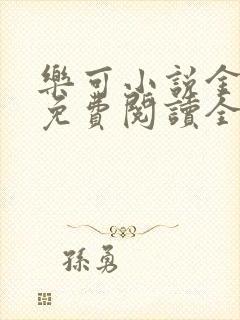 樂可小說全
免費閱讀全
孫勇